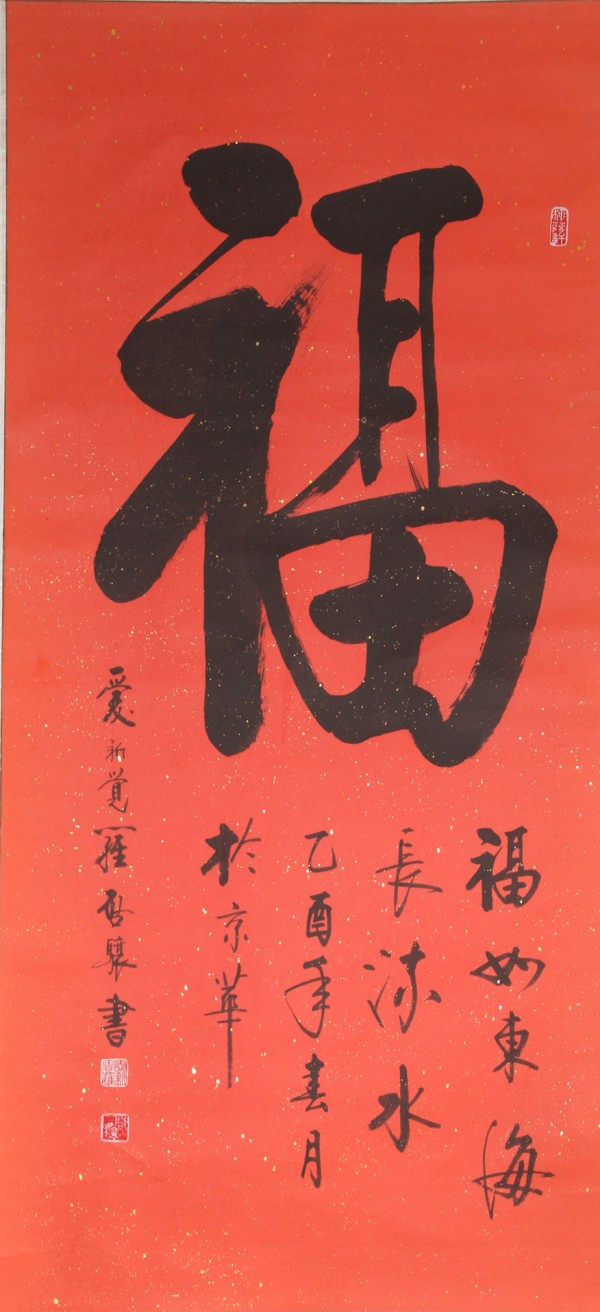 福
福如東海
長流水
乙酉年春月
於京華
愛新覺羅啟驤書